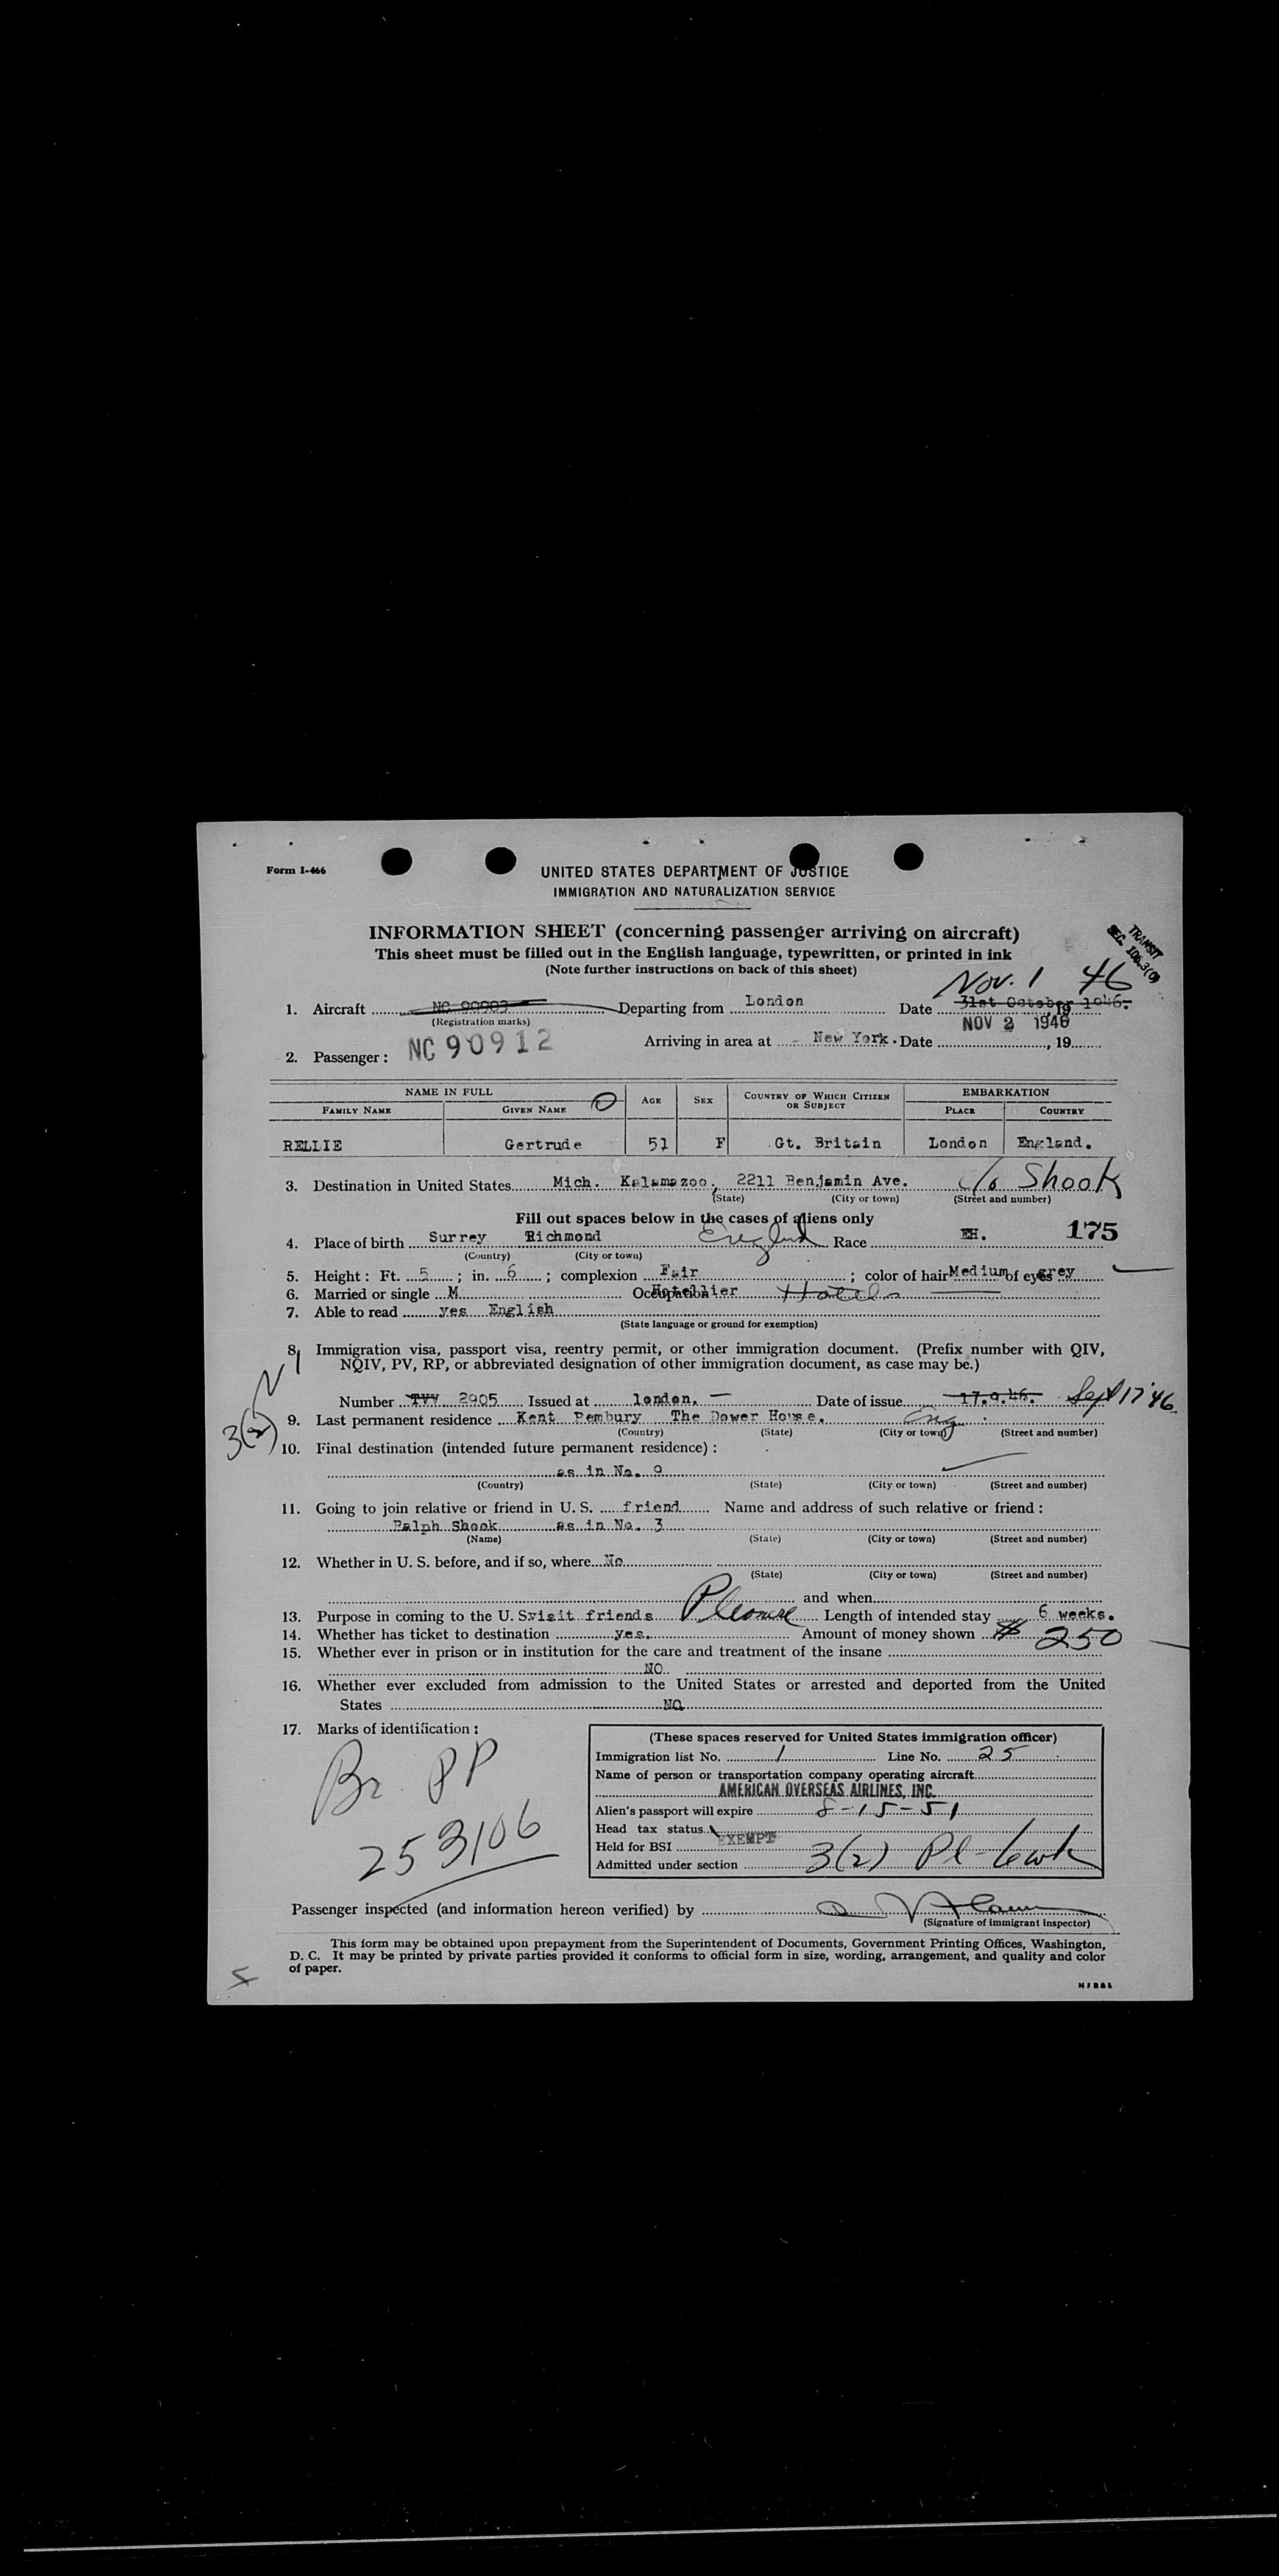 Form I-466
UNITED STATES DEPARTMENT OF JUSTICE
IMMIGRATION AND NATURALIZATION SERVICE
INFORMATION SHEET (concerning passenger arriving on aircraft)
This sheet must be filled out in the English language, typewritten, or printed in ink
(Note further instructions on back of this sheet)
TRANSIT
SEC. 106.3(0)
Nov. 1 46
1. Aircraft NC 90903 Departing from London Date 31st October 1946. 19
(Registration marks)
NC 90912
NOV 2 1946
Arriving in area at - New York. Date , 19
2. Passenger:
NAME IN FULL AGE SEX COUNTRY OF WHICH CITIZEN OR SUBJECT EMBARKATION
FAMILY NAME GIVEN NAME PLACE COUNTRY
RELLIE Gertrude 51 F Gt. Britain London England.
3. Destination in United States Mich. Kalamazoo, 2211 Benjamin Ave. c/o Shook
(State) (City or town) (Street and number)
Fill out spaces below in the cases of aliens only
4. Place of birth Surrey Richmond England Race EH. 175
(Country) (City or town)
5. Height: Ft. 5; in. 6; complexion Fair; color of hair Medium of eyes grey
6. Married or single M Occupation Hotellier Hotel
7. Able to read yes English
(State language or ground for exemption)
8. Immigration visa, passport visa, reentry permit, or other immigration document. (Prefix number with QIV,
NQIV, PV, RP, or abbreviated designation of other immigration document, as case may be.)
Number TVV 2905 Issued at london. Date of issue 17.9.46. Sept 17 '46
3(2)
9. Last permanent residence Kent Pembury The Dower House. Eng
(Country) (State) (City or town) (Street and number)
10. Final destination (intended future permanent residence):
as in No. 9
(Country) (State) (City or town) (Street and number)
11. Going to join relative or friend in U. S. friend Name and address of such relative or friend:
Ralph Shook as in No. 3
(Name) (State) (City or town) (Street and number)
12. Whether in U. S. before, and if so, where No
(State) (City or town) (Street and number)
and when
13. Purpose in coming to the U. S visit friends Pleasure Length of intended stay 6 weeks.
14. Whether has ticket to destination yes. Amount of money shown $ 250
15. Whether ever in prison or in institution for the care and treatment of the insane
NO.
16. Whether ever excluded from admission to the United States or arrested and deported from the United
States NO
17. Marks of identification:
Br. PP
253106
(These spaces reserved for United States immigration officer)
Immigration list No. 1 Line No. 25
Name of person or transportation company operating aircraft
AMERICAN OVERSEAS AIRLINES, INC.
Alien's passport will expire 8-15-51
Head tax status EXEMPT
Held for BSI
Admitted under section 3(2) Pl-6wk
Passenger inspected (and information hereon verified) by
(Signature of immigrant inspector)
This form may be obtained upon prepayment from the Superintendent of Documents, Government Printing Offices, Washington,
D. C. It may be printed by private parties provided it conforms to official form in size, wording, arrangement, and quality and color
of paper.